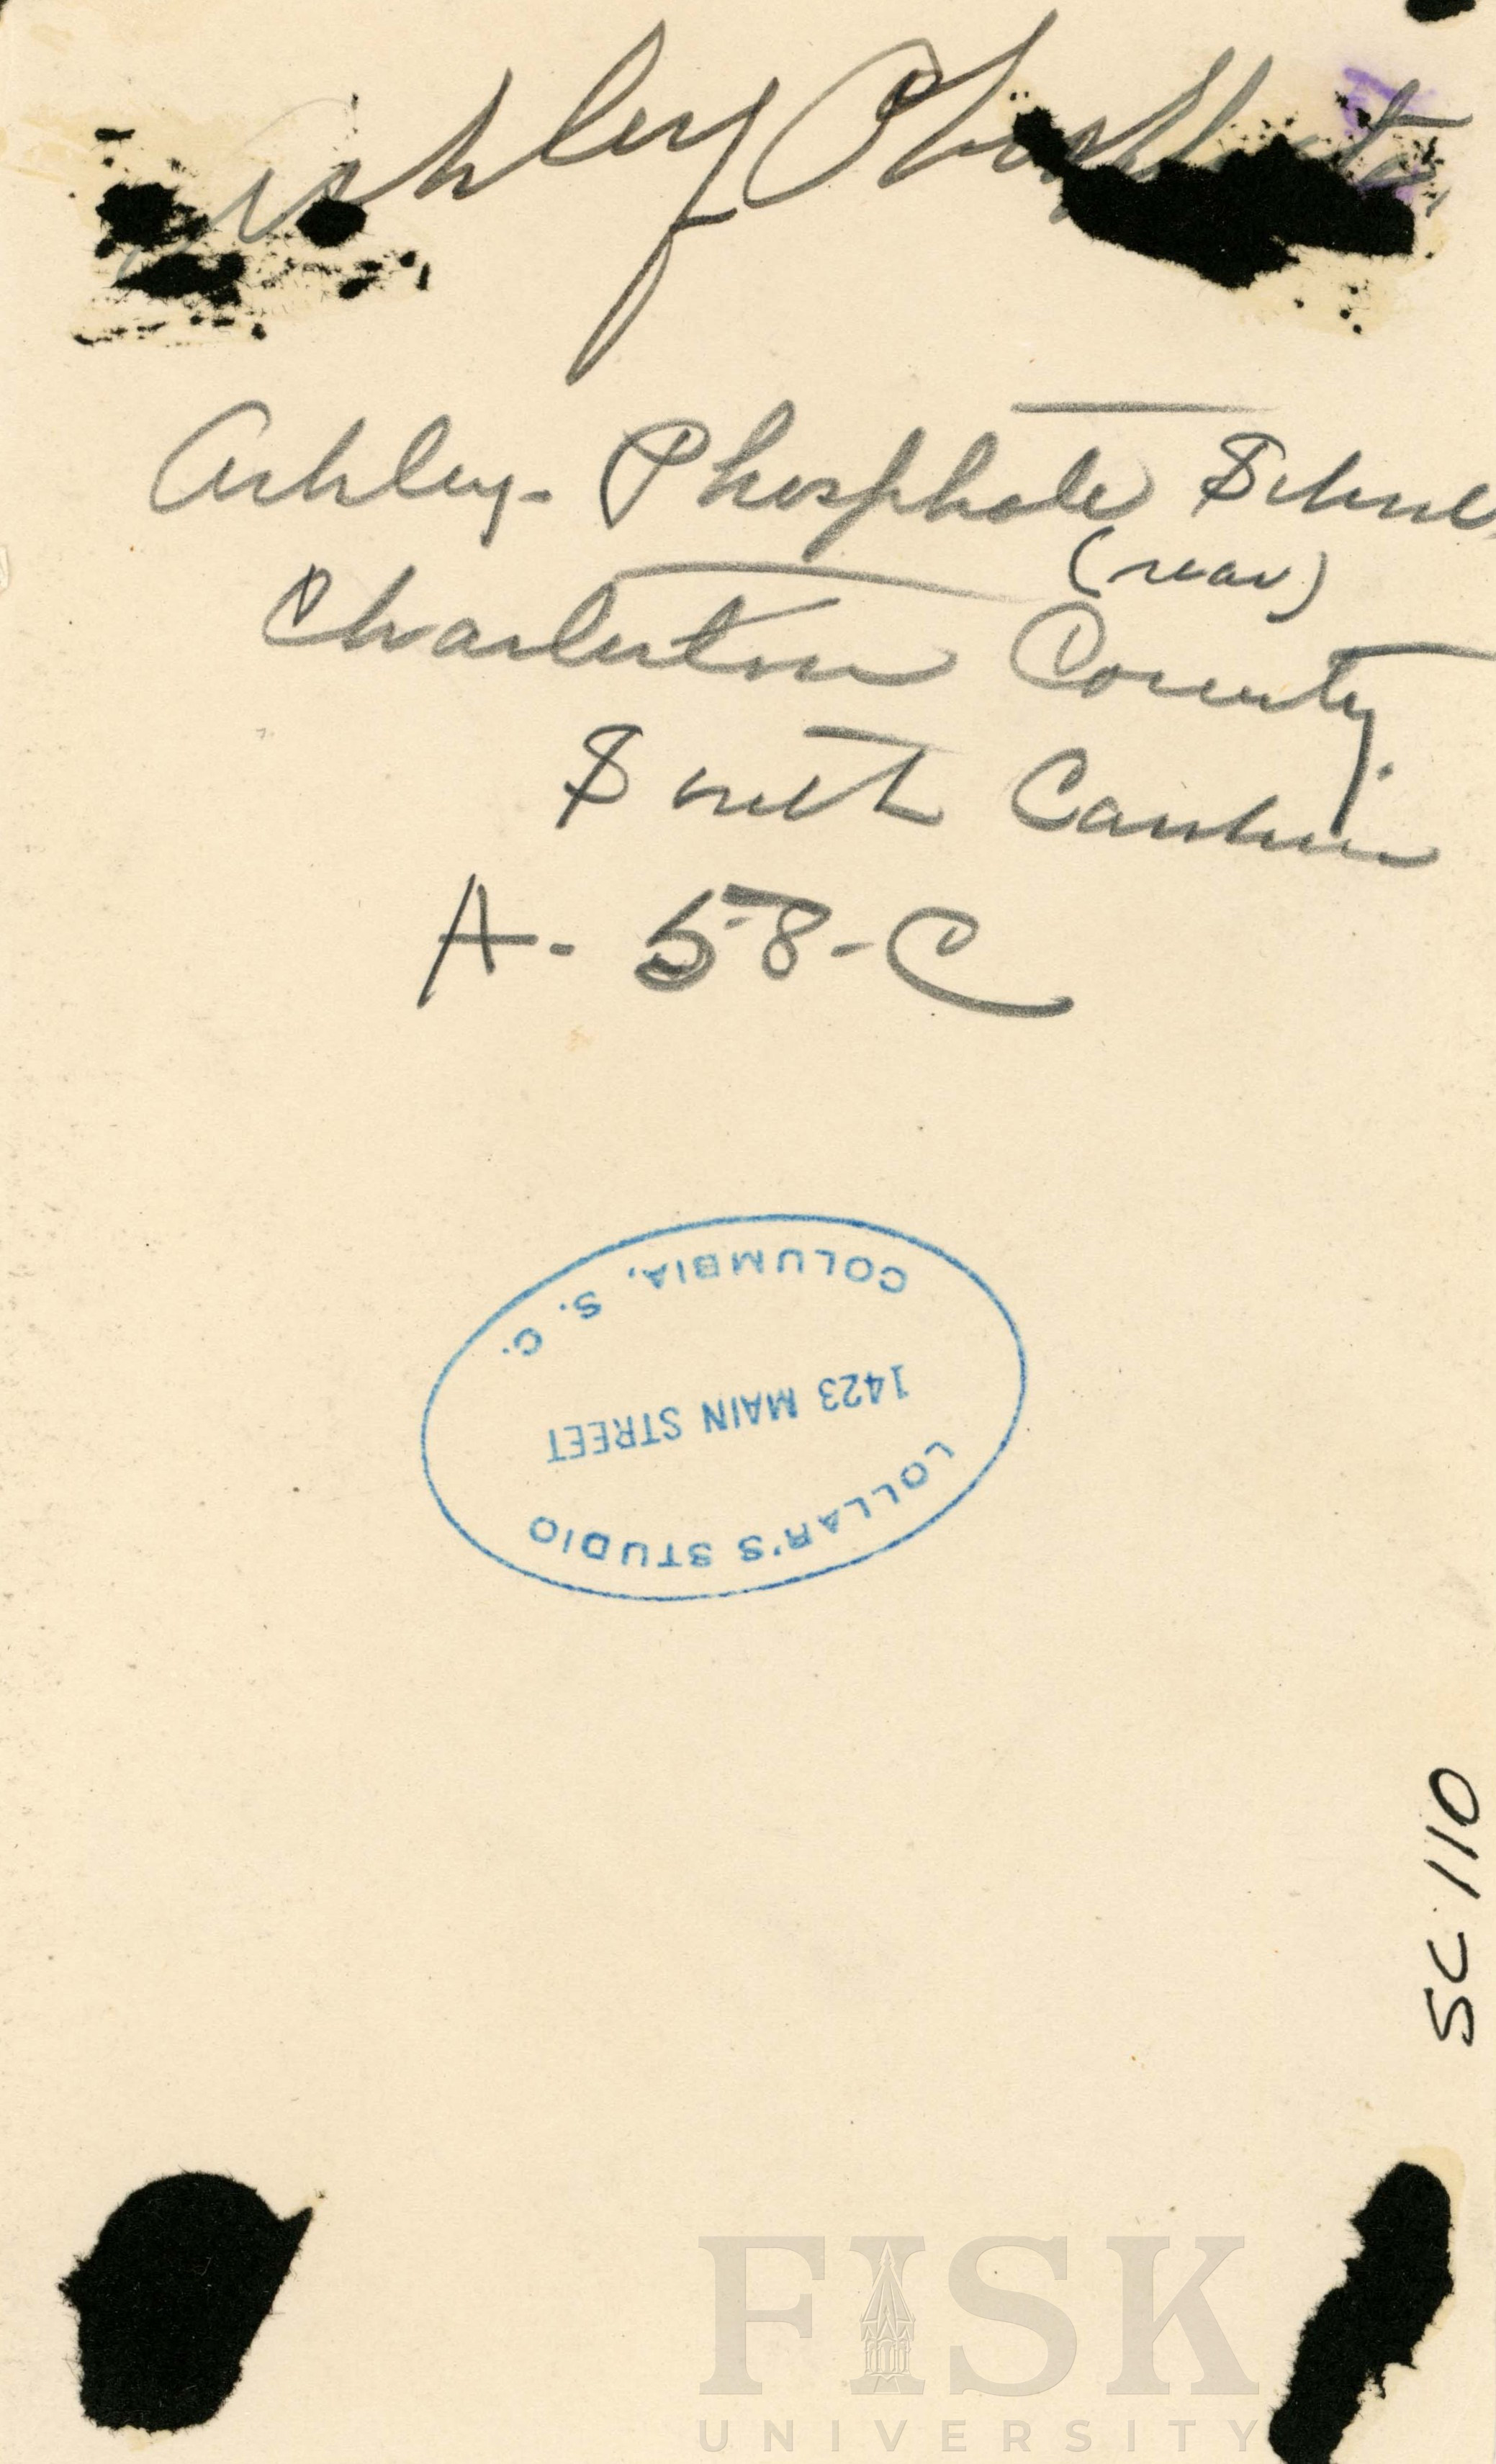 Ashley Phosphate
Ashley- Phosphate School
(rear)
Charleston County.
South Carolina
A- 58-C
LOLLAR'S STUDIO
1423 MAIN STREET
COLUMBIA, S. C.
SC 110
FISK
UNIVERSITY